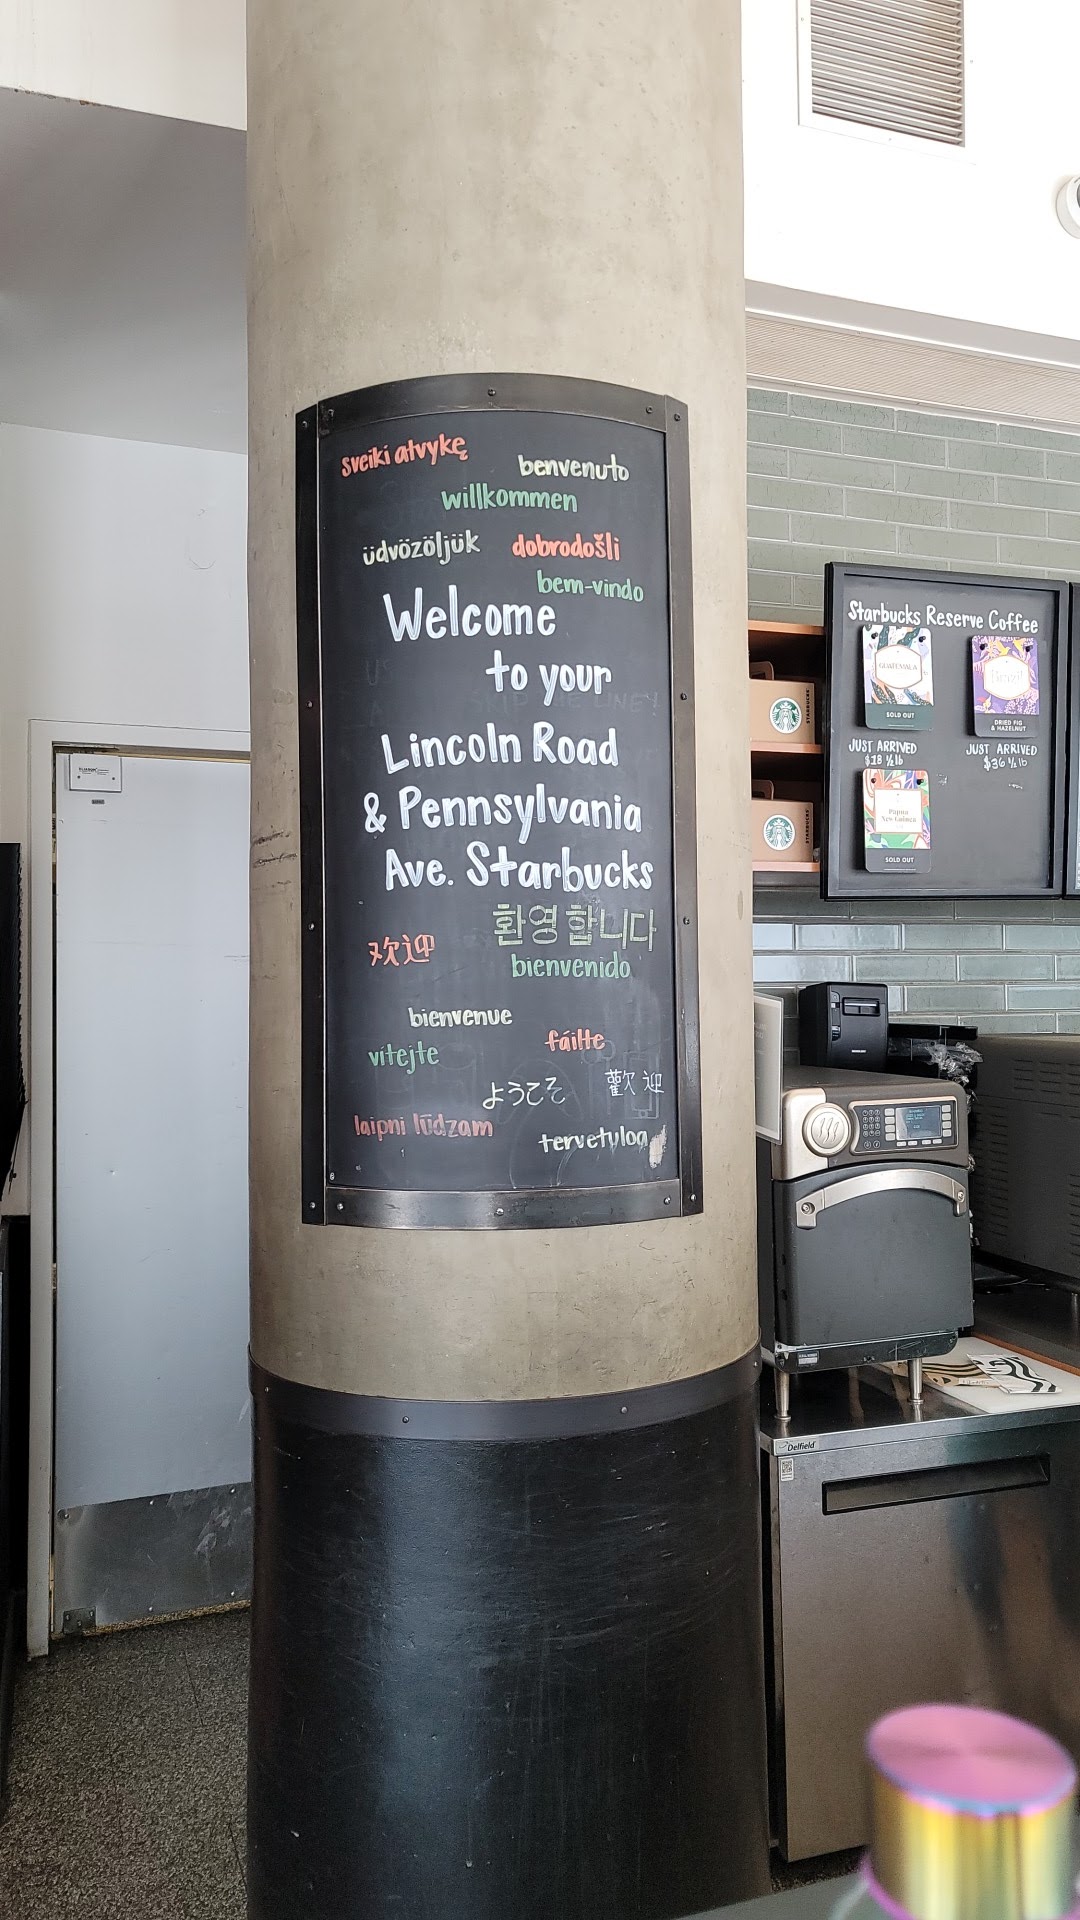 sveiki atvykę
benvenuto
willkommen
üdvözöljük
dobrodošli
bem-vindo
Welcome
to your
Lincoln Road
& Pennsylvania
Ave. Starbucks
환영합니다
欢迎
bienvenido
bienvenue
fáilte
vítejte
ようこそ
歡迎
laipni lūdzam
tervetuloa
Starbucks Reserve Coffee
GUATEMALA
SOLD OUT
Brazil
DRIED FIG
& HAZELNUT
JUST ARRIVED
$18 ½ lb
JUST ARRIVED
$36 ½ lb
Papua
New Guinea
SOLD OUT
STARBUCKS
STARBUCKS
Delfield